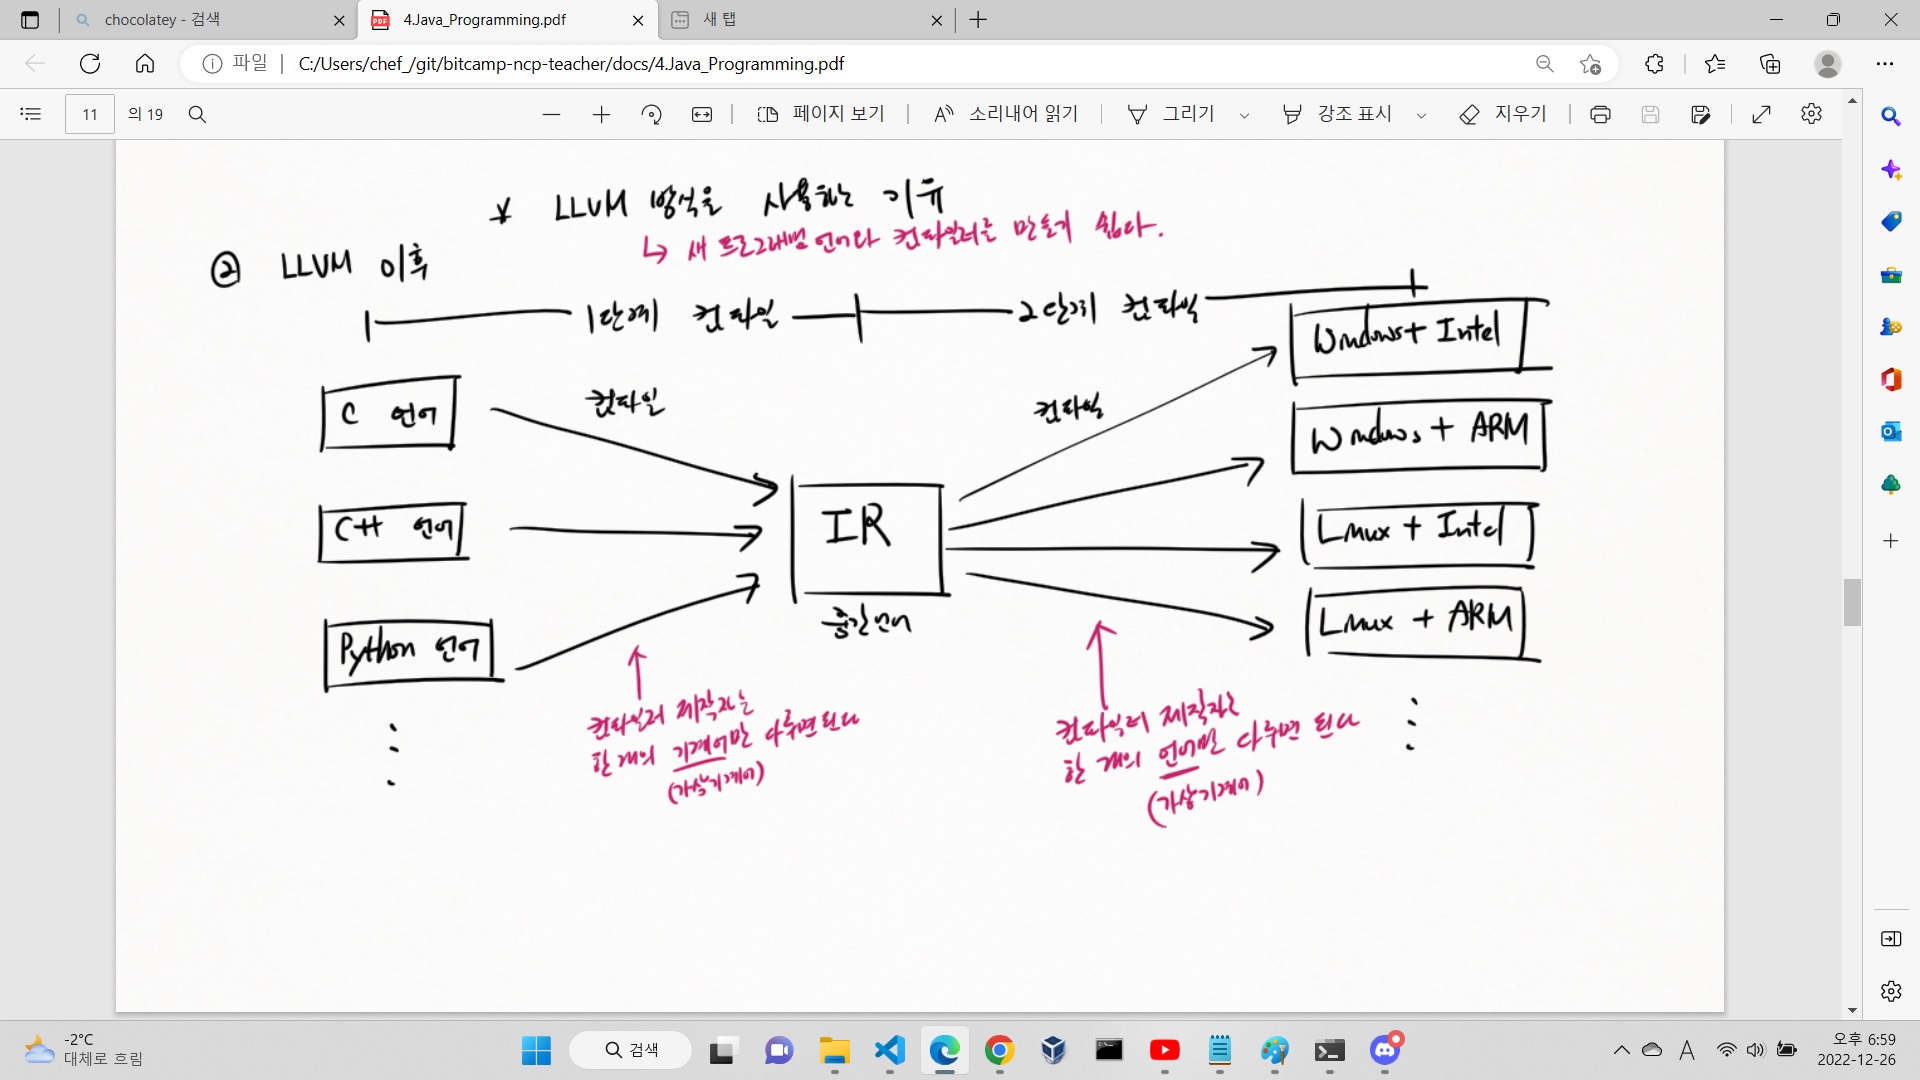 chocolatey - 검색
4.Java_Programming.pdf
새 탭
파일
C:/Users/chef_/git/bitcamp-ncp-teacher/docs/4.Java_Programming.pdf
11
의 19
페이지 보기
소리내어 읽기
그리기
강조 표시
지우기
* LLVM 방식을 사용하는 이유
↳ 새 프로그래밍 언어나 컴파일러를 만들기 쉽다.
② LLVM 이후
1단계 컴파일
2단계 컴파일
Windows + Intel
C 언어
컴파일
컴파일
Windows + ARM
C++ 언어
IR
Linux + Intel
중간언어
Linux + ARM
Python 언어
컴파일러 제작자는
한 개의 기계어만 다루면 된다
(가상기계어)
컴파일러 제작자는
한 개의 언어만 다루면 된다
(가상기계어)
-2°C
대체로 흐림
검색
A
오후 6:59
2022-12-26